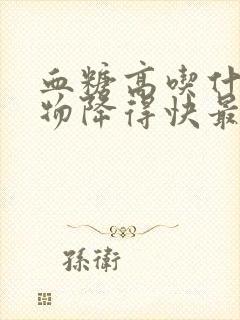 血糖高喫什
物降得快最
孫衛